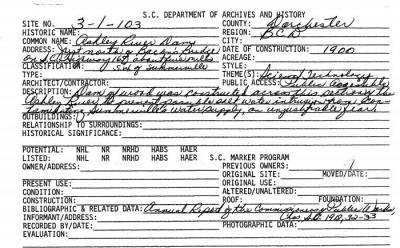 S.C. DEPARTMENT OF ARCHIVES AND HISTORY
SITE NO. 3-1-103 COUNTY: Dorchester
HISTORIC NAME: REGION: BCD
COMMON NAME: Ashley River Dam CITY:
ADDRESS: just north of Bacon's Bridge DATE OF CONSTRUCTION: 1900
on S.C. Highway 165 about five miles ACREAGE:
CLASSIFICATION: S.W. of Summerville STYLE:
TYPE: THEME(S): Science Technology
ARCHITECT/CONTRACTOR: PUBLIC ACCESS: Accessible
DESCRIPTION: Dam of wood was constructed across this
Ashley River to prevent possible salt water intrusion from
water supply, an unjustifiable fear.
OUTBUILDINGS:
RELATIONSHIP TO SURROUNDINGS:
HISTORICAL SIGNIFICANCE:
POTENTIAL: NHL NR NRHD HABS HAER
LISTED: NHL NR NRHD HABS HAER S.C. MARKER PROGRAM
OWNER/ADDRESS: PREVIOUS OWNERS:
ORIGINAL SITE: MOVED/DATE:
PRESENT USE: ORIGINAL USE:
CONDITION: ALTERED/UNALTERED:
CONSTRUCTION: ROOF: FOUNDATION:
BIBLIOGRAPHIC & RELATED DATA: Annual Report of the Commissioners of Public Works,
INFORMANT/ADDRESS: Chas SC 1918, 32-33
RECORDED BY/DATE: PHOTOGRAPHIC DATA:
EVALUATION: